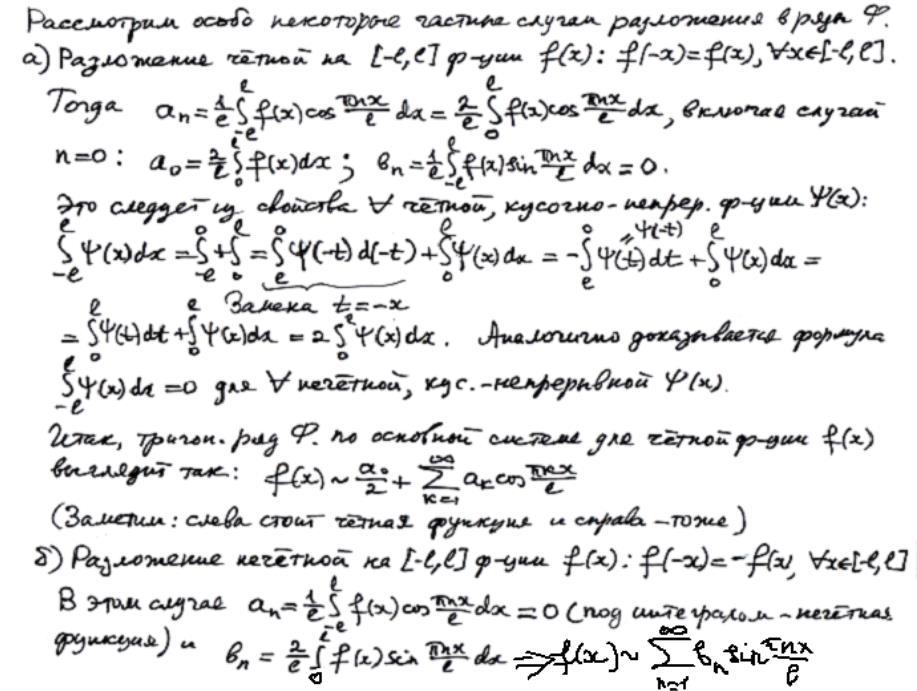 Рассмотрим особо некоторые частные случаи разложения в ряды Ф.
а) Разложение чётной на [-l,l] ф-ции f(x): f(-x)=f(x), ∀x∈[-l,l].
Тогда a_n = 1/l ∫_{-l}^{l} f(x) cos πnx/l dx = 2/l ∫_0^l f(x) cos πnx/l dx, включая случай
n=0: a_0 = 2/l ∫_0^l f(x)dx; b_n = 1/l ∫_{-l}^{l} f(x) sin πnx/l dx = 0.
Это следует из свойства ∀ чётной, кусочно-непрер. ф-ции Ψ(x):
∫_{-l}^{l} Ψ(x)dx = ∫_{-l}^{0} + ∫_0^l = ∫_l^0 Ψ(-t) d(-t) + ∫_0^l Ψ(x)dx = -∫_l^0 Ψ(t)dt + ∫_0^l Ψ(x)dx =
= Ψ(-t)
Замена t=-x
= ∫_0^l Ψ(t)dt + ∫_0^l Ψ(x)dx = 2∫_0^l Ψ(x)dx. Аналогично доказывается формула
∫_{-l}^{l} Ψ(x)dx = 0 для ∀ нечётной, кус.-непрерывной Ψ(x).
Итак, тригон. ряд Ф. по основной системе для чётной ф-ции f(x)
выглядит так: f(x) ~ a_0/2 + ∑_{k=1}^{∞} a_k cos πkx/l
(Заметим: слева стоит чётная функция и справа - тоже)
б) Разложение нечётной на [-l,l] ф-ции f(x): f(-x)=-f(x), ∀x∈[-l,l]
В этом случае a_n = 1/l ∫_{-l}^{l} f(x) cos πnx/l dx = 0 (под интегралом - нечётная
функция) и b_n = 2/l ∫_0^l f(x) sin πnx/l dx ⇒ f(x) ~ ∑_{n=1}^{∞} b_n sin πnx/l